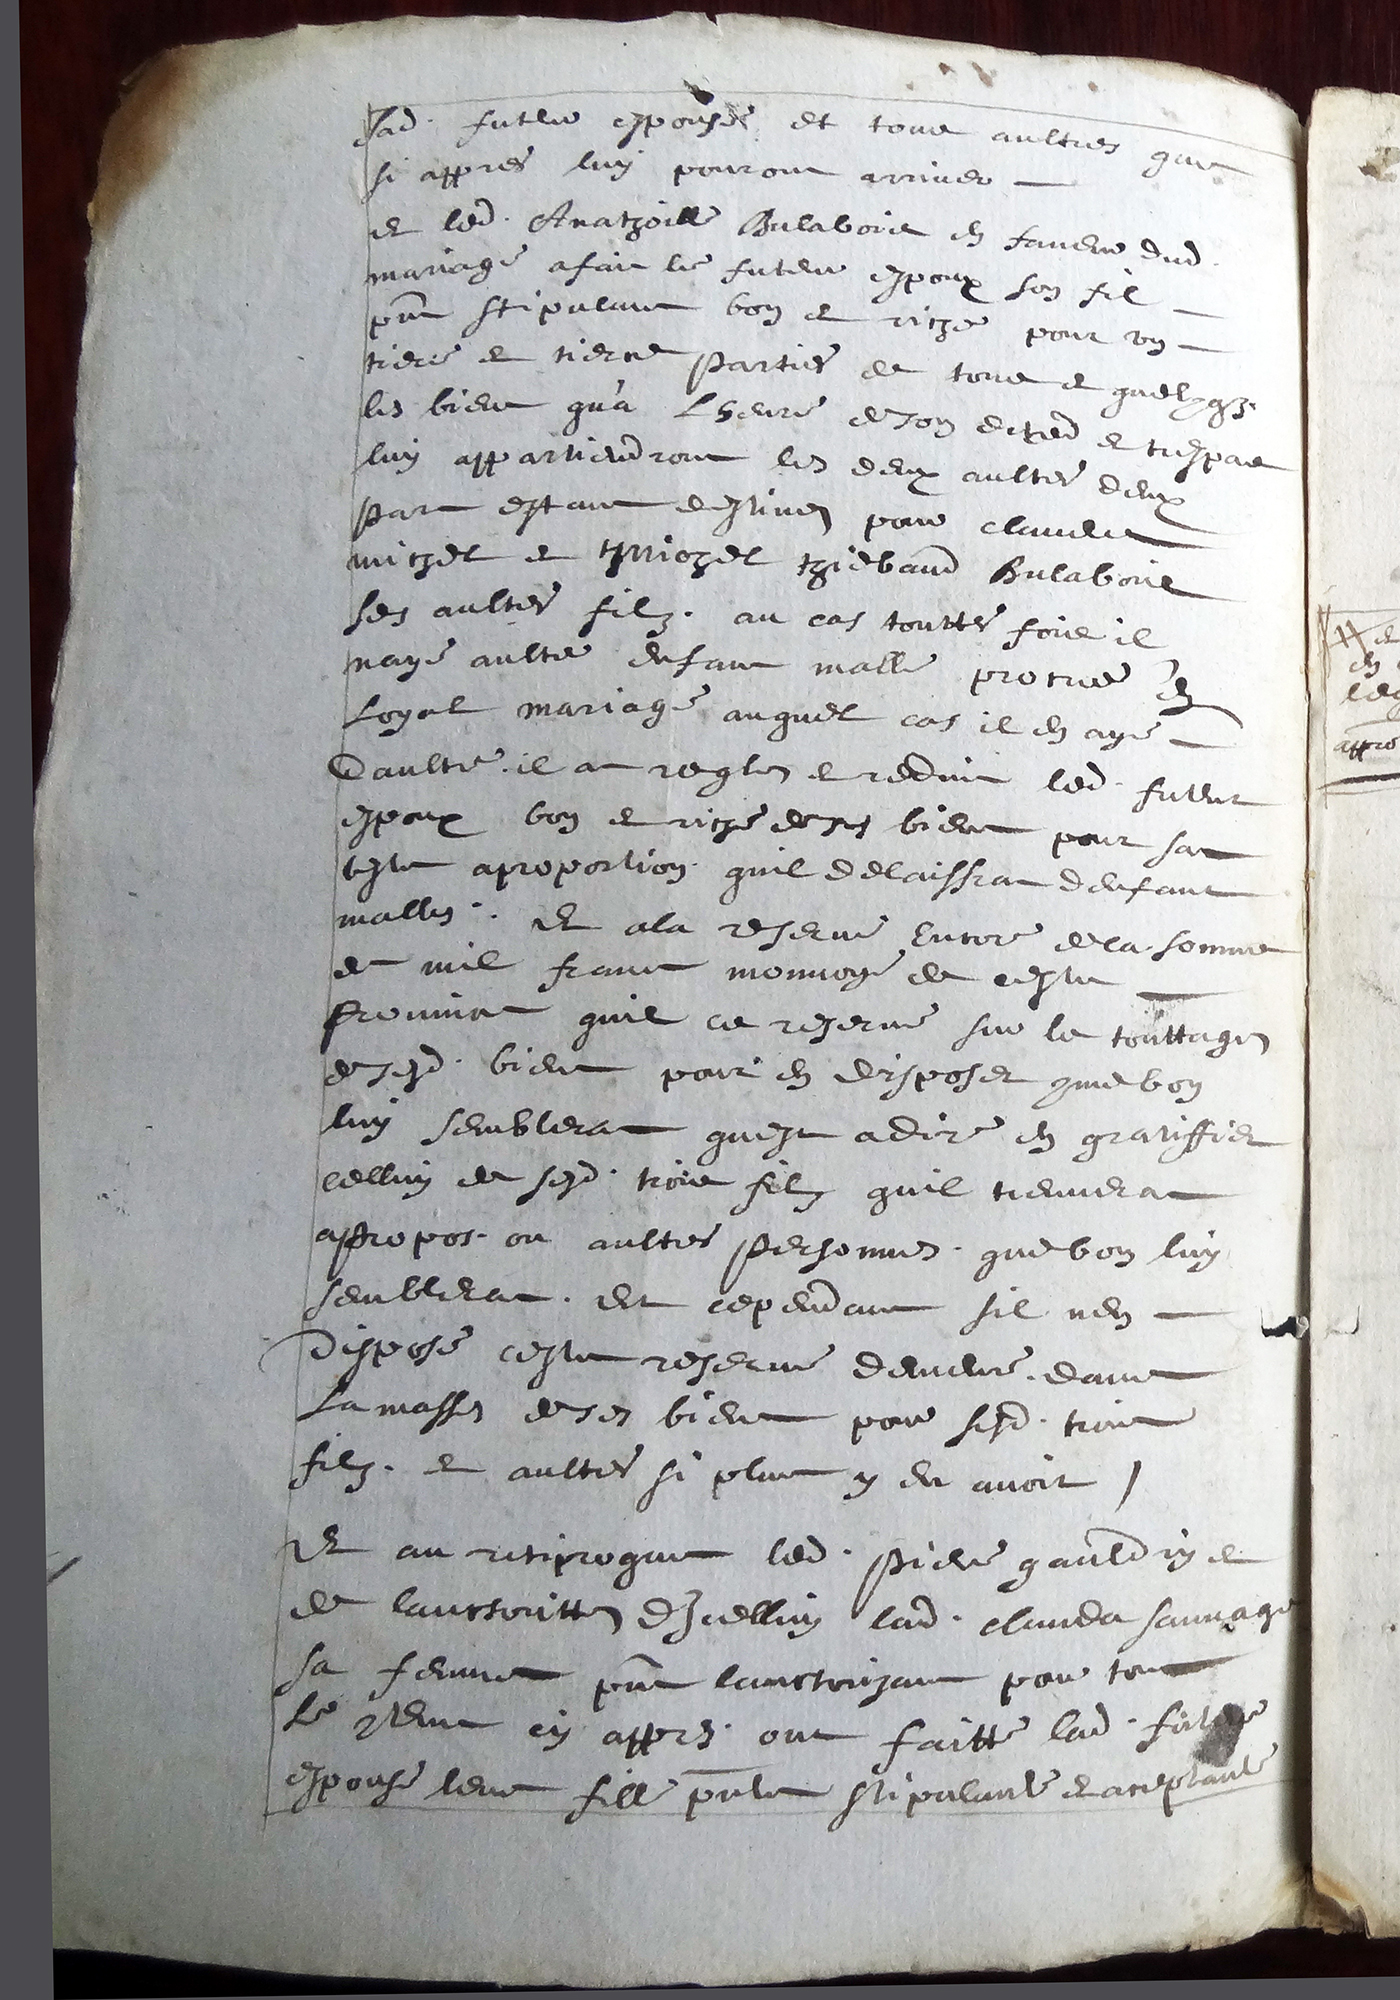 lad. future espouse et tous aultres que
si appres luy pouront arriver
et led. Anathoille Bulaboie en faveur dud.
mariage a fait le futeur espoux son fil
pnt stipulant bon et riche pour un
tiers et tierce partie de tous et quelzqz
les biens qu'a Lheure de son deced et trespas
luy appartiendront les deux aultres deux
part estant destinez pour claude
michel et thiebaud Bulaboie
ses aultres filz. au cas touttes fois il
naye aultre enfant malle procree en
Loyal mariage auquel cas il en aye
Daultre. il at regles et reduit led. futur
espoux bon et riche de ses biens pour sa
teste a proportion quil delaissrat denfant
malles. Et a la reserve Encore de la somme
de mil francs monnoye de ceste
province quil ce reserve sur le touttages
de sesd. biens pour en disposer que bon
luy semblerat quest a dire en gratiffier
celluy de sesd. trois filz quil treuverat
appropos. ou aultres personnes. que bon luy
semblerat. Et cependant sil nen
Dispose ceste reserve demeure. dans
La masses de ses biens pour sesd. trois
filz. et aultres si plus y en avoit /
Et au reciproque led. Piere gauldry et
de lauctorittes Dicelluy lad. clauda sauvage
sa femme pnt lauctorizant pour tout
Le Contenu cy appres. ont faitte lad. future
espouse leur fille pnte stipulante et aceptante
et
en
appro